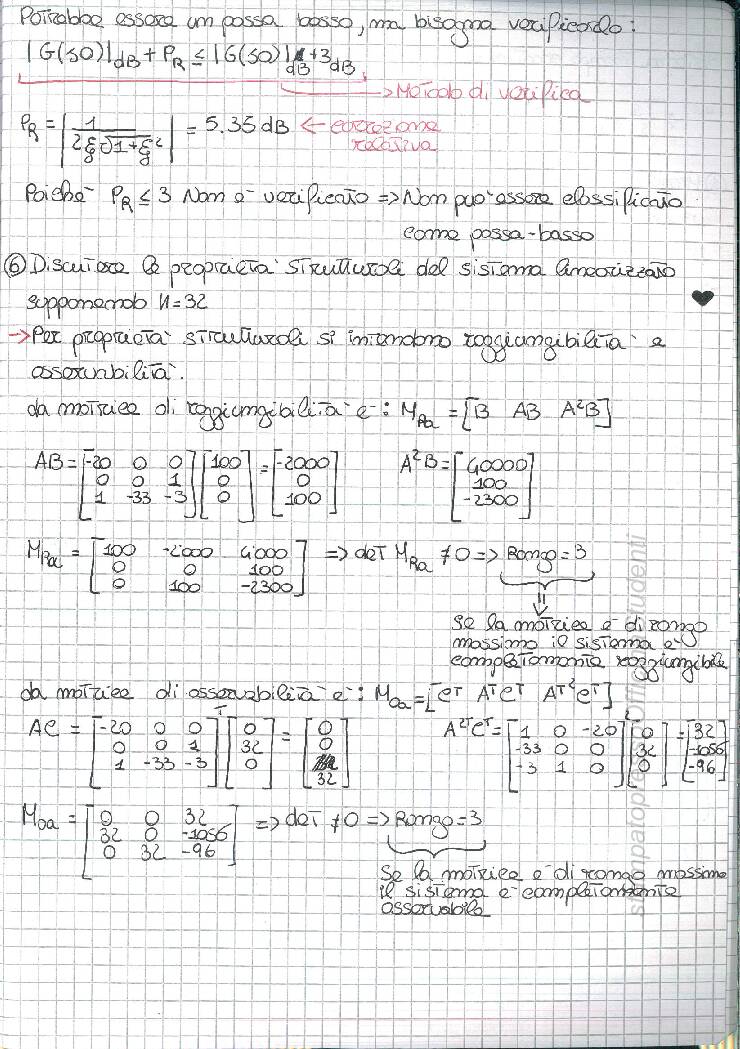 Potrebbe essere un passa basso, ma bisogna verificarlo:
|G(s0)|dB + PR ≤ |G(s0)|dB + 3dB
→ Metodo di verifica
PR = |1 / 2ξ√1+ξ²| = 5.35 dB ← correzione relativa
Poiché PR ≤ 3 Non è verificato => Non può essere classificato
come passa-basso
⑥ Discutere le proprietà strutturali del sistema linearizzato
supponendo N=32
→ Per proprietà strutturali si intendono raggiungibilità e
osservabilità.
La matrice di raggiungibilità è: MRa = [B AB A²B]
AB = [-20 0 0; 0 0 1; 1 -33 -3] [100; 0; 0] = [-2000; 0; 100] A²B = [40000; 100; -2300]
MRa = [100 -2000 4000; 0 0 100; 0 100 -2300] => det MRa ≠ 0 => Rango = 3
Se la matrice è di rango
massimo il sistema è
completamente raggiungibile
La matrice di osservabilità è: MOa = [Cᵀ AᵀCᵀ Aᵀ²Cᵀ]
AC = [-20 0 0; 0 0 1; 1 -33 -3]ᵀ [0; 32; 0] = [0; 0; 32] A²ᵀCᵀ = [1 0 -20; -33 0 0; -3 1 0] [0; 32; 0] = [32; -1056; -96]
MOa = [0 0 32; 32 0 -1056; 0 32 -96] => det ≠ 0 => Rango = 3
Se la matrice è di rango massimo
il sistema è completamente
osservabile